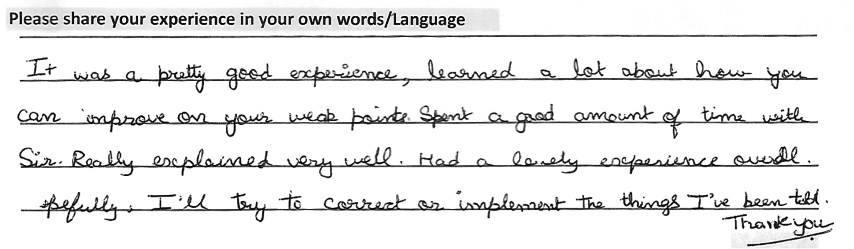 Please share your experience in your own words/Language
It was a pretty good experience, learned a lot about how you
can improve on your weak points. Spent a good amount of time with
Sir. Really explained very well. Had a lovely experience overall.
pefully, I'll try to correct or implement the things I've been told.
Thank you